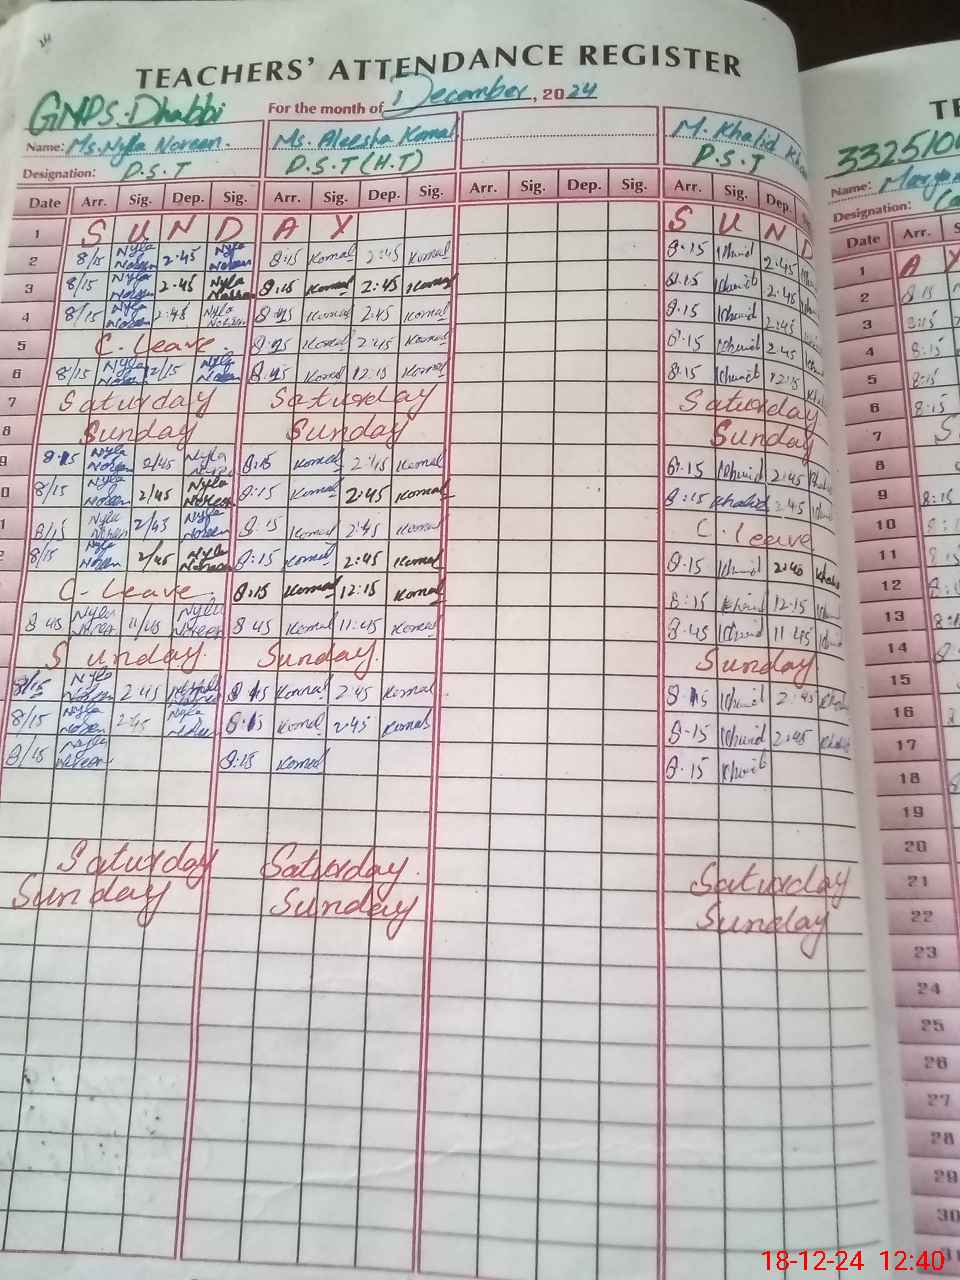 TEACHERS' ATTENDANCE REGISTER
GMPS. Dhabbi For the month of December, 2024
Name: Ms. Nyla Noreen. Ms. Aleesha Komal M. Khalid
Designation: P.S.T P.S.T (H.T) P.S.T
Date Arr. Sig. Dep. Sig. Arr. Sig. Dep. Sig. Arr. Sig. Dep. Sig. Arr. Sig. Dep.
1 S U N D A Y S U N D
2 8/15 Nyla Noreen 2:45 Nyla Noreen 8:15 Komal 2:45 Komal 8:15 2:45
3 8/15 Nyla Noreen 2:45 Nyla Noreen 8:15 Komal 2:45 Komal 8:15 2:45
4 8/15 Nyla Noreen 2:45 Nyla Noreen 8:15 Komal 2:45 Komal 8:15 2:45
5 C. Leave. 8:15 Komal 2:45 Komal 8:15 2:45
6 8/15 Nyla Noreen 12/15 Nyla Noreen 8:15 Komal 12:15 Komal 8:15 12:15
7 Saturday Saturday Saturday
8 Sunday Sunday Sunday
9 8:15 Nyla Noreen 2/45 Nyla Noreen 8:15 Komal 2:45 Komal 8:15 2:45
0 8/15 Nyla Noreen 2/45 Nyla Noreen 8:15 Komal 2:45 Komal 8:15 Khalid 2:45
1 8/15 Nyla Noreen 2/45 Nyla Noreen 8:15 Komal 2:45 Komal C. leave
2 8/15 Nyla Noreen 2/45 Nyla Noreen 8:15 Komal 2:45 Komal 8:15 2:45
C- Leave. 8:15 Komal 12:15 Komal 8:15 12:15
8 45 Nyla Noreen 11/45 Nyla Noreen 8 45 Komal 11:45 Komal 8:45 11:45
Sunday. Sunday. Sunday
8/15 Nyla Noreen 2:45 8:15 Komal 2:45 Komal 8:15 2:45
8/15 Nyla Noreen 2:45 Nyla Noreen 8:15 Komal 2:45 Komal 8:15 2:45
8/15 Nyla Noreen 8:15 Komal 8:15
Saturday Saturday. Saturday
Sunday Sunday Sunday
3325100
Name:
Designation:
Date Arr.
1 A
2 8:15
3
4 8:15
5 8:15
6 8:15
7 S
8
9 8:15
10
11
12
13
14
15
16
17
18
19
20
21
22
23
24
25
26
27
28
29
30
18-12-24 12:40